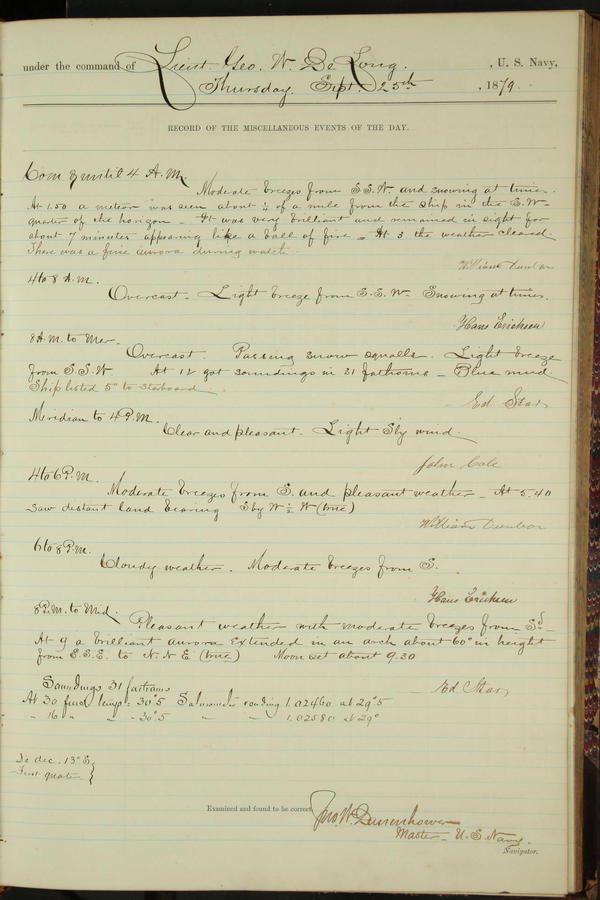 under the command of Lieut. Geo. W. De Long. , U. S. Navy,
Thursday. Sept. 25th , 1879.
RECORD OF THE MISCELLANEOUS EVENTS OF THE DAY.
Com & until 4 A.M.
Moderate breezes from S.S.W. and snowing at times.
At 1.50 a meteor was seen about ½ of a mile from the ship in the S.W.
quarter of the horizon - It was very brilliant and remained in sight for
about 7 minutes appearing like a ball of fire - At 3 the weather cleared.
There was a fine aurora during watch.
William Dunbar
4 to 8 A.M.
Overcast - Light breeze from S.S.W. Snowing at times.
Hans Erichsen
8 A.M. to Mer.
Overcast. Passing snow squalls. Light breeze
from S.S.W. At 12 got soundings in 31 fathoms - Blue mud.
Ship listed 5° to starboard.
Ed Star
Meridian to 4 P.M.
Clear and pleasant. Light S'ly wind.
John Cole
4 to 6 P.M.
Moderate breezes from S. and pleasant weather - At 5.40
saw distant land bearing S by W ½ W (true)
William Dunbar
6 to 8 P.M.
Cloudy weather. Moderate breezes from S.
Hans Erichsen
8 P.M. to Mid.
Pleasant weather with moderate breezes from S'd -
At 9 a brilliant aurora extended in an arch about 60° in height
from E.S.E. to N.N.E (true) Moon set about 9.30
Ed Star
Soundings 31 fathoms
At 30 fms temp = 30°5 Salinometer reading 1.02460 at 29°5
" 16 " " - 30°5 " " 1.02580 at 29°
De dec. 13° S.
First quarter
Examined and found to be correct
Jno W. Danenhower
Master - U.S. Navy
Navigator.